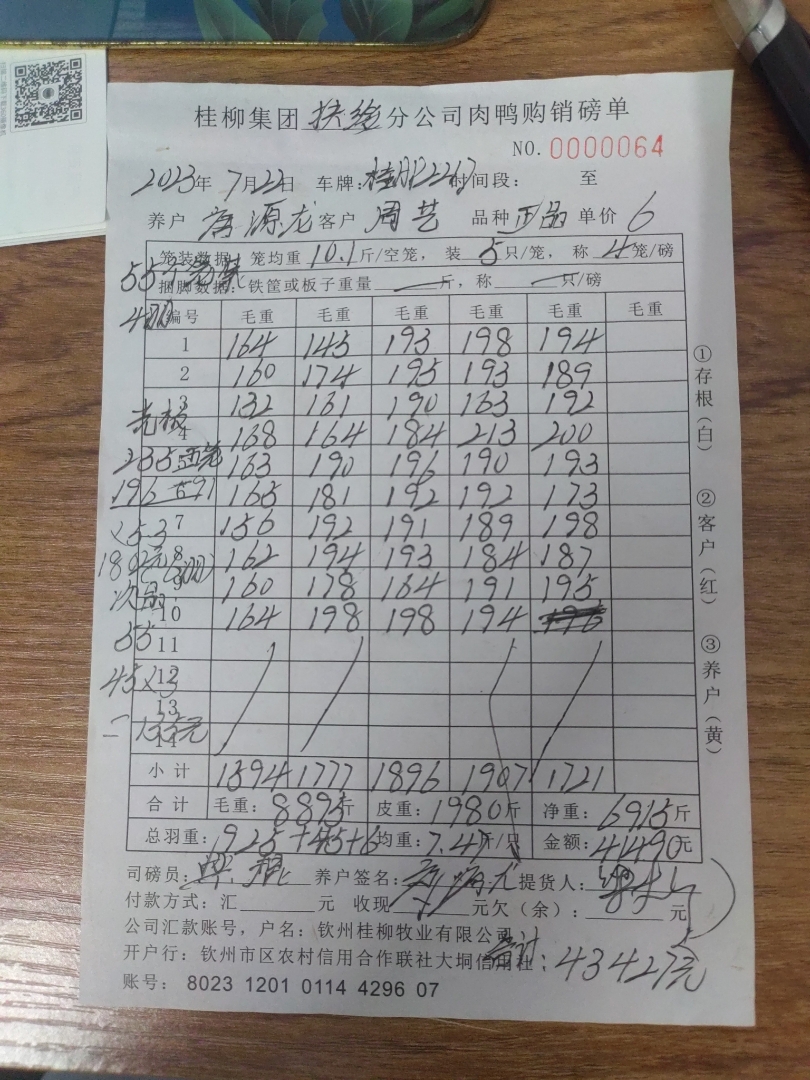 桂柳集团扶绥分公司肉鸭购销磅单
NO. 0000064
2023年7月22日 车牌: 时间段: 至
养户 源龙 客户 周艺 品种 正品 单价 6
笼装数据: 笼均重10.1斤/空笼, 装5只/笼, 称4笼/磅
捆脚数据: 铁筐或板子重量 斤, 称 只/磅
编号 毛重 毛重 毛重 毛重 毛重 毛重
1 164 145 193 198 194
2 160 174 195 193 189
3 132 161 190 163 192
4 168 164 184 213 200
163 190 196 190 193
165 181 192 192 173
7 156 192 191 189 198
8 162 194 193 184 187
9 160 178 164 191 195
10 164 198 198 194
11
12
13
14
小计 1594 1777 1896 1907 1721
合计 毛重: 8895斤 皮重: 1980斤 净重: 6915斤
总羽重: 925+45+6 均重: 7.47斤/只 金额: 41490元
司磅员: 养户签名: 提货人:
付款方式: 汇 元 收现 元欠(余): 元
公司汇款账号, 户名: 钦州桂柳牧业有限公司
开户行: 钦州市区农村信用合作联社大垌信用社;
合计 43427元
账号: 8023 1201 0114 4296 07
次品
55
45×3
=135元
①存根(白) ②客户(红) ③养户(黄)